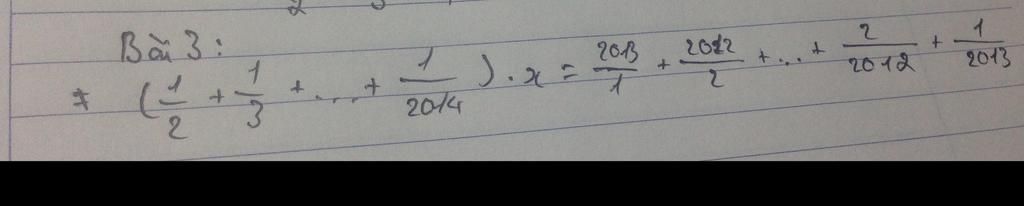 Bài 3:
* (1/2 + 1/3 + ... + 1/2014) . x = 2013/1 + 2012/2 + ... + 2/2012 + 1/2013